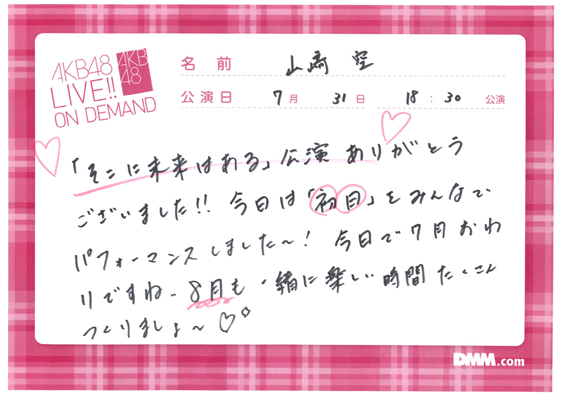 AKB48
LIVE!!
ON DEMAND
AKB
48
名前 山﨑 空
公演日 7月 31日 18:30 公演
「そこに未来はある」公演 ありがとう
ございました!! 今日は「初日」をみんなで
パフォーマンスしました〜! 今日で7月おわ
りですね、8月も一緒に楽しい時間たくさん
つくりましょ〜♡
DMM.com